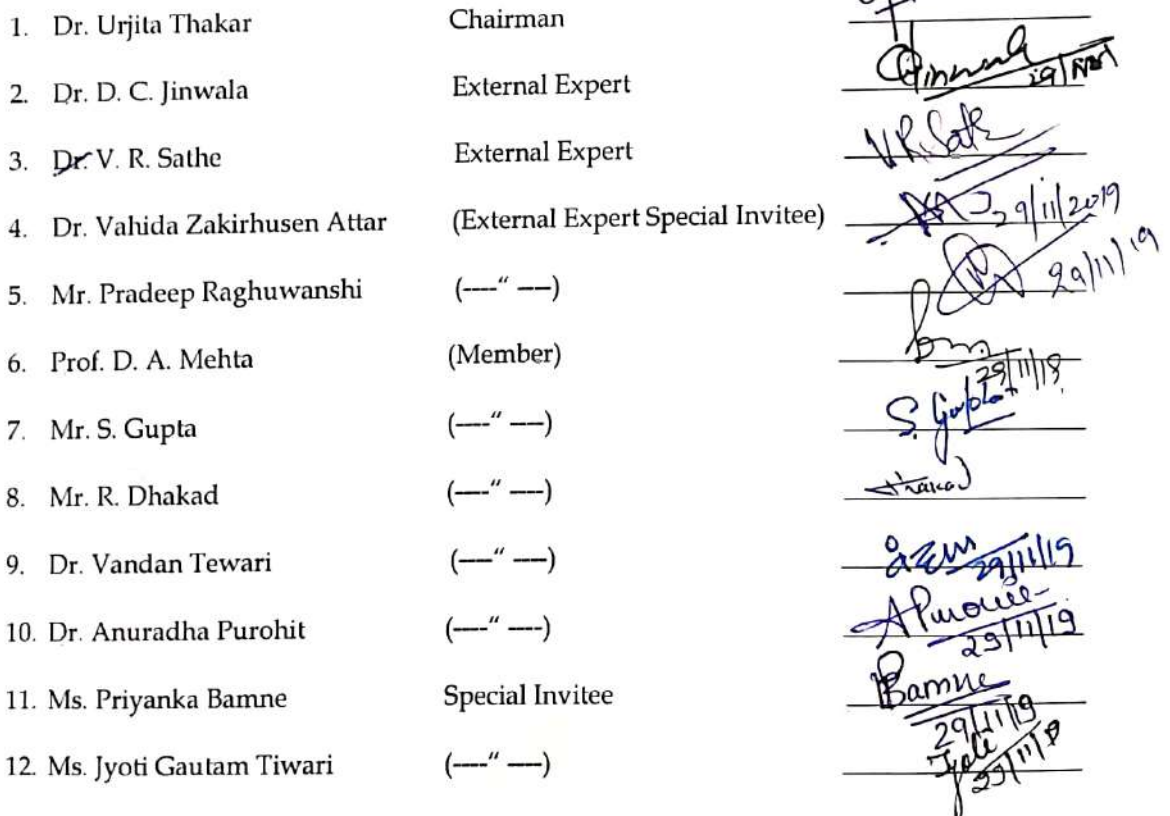 1. Dr. Urjita Thakar Chairman
2. Dr. D. C. Jinwala External Expert Jinwala 29/Nov
3. Dr. V. R. Sathe External Expert V R Sathe
4. Dr. Vahida Zakirhusen Attar (External Expert Special Invitee) 29/11/2019
5. Mr. Pradeep Raghuwanshi (----" ----) 29/11/19
6. Prof. D. A. Mehta (Member) 29/11/19
7. Mr. S. Gupta (----" ----) S. Gupta
8. Mr. R. Dhakad (----" ----)
9. Dr. Vandan Tewari (----" ----) 29/11/19
10. Dr. Anuradha Purohit (----" ----) APurohit 29/11/19
11. Ms. Priyanka Bamne Special Invitee PBamne 29/11/19
12. Ms. Jyoti Gautam Tiwari (----" ----) Jyoti 29/11/19